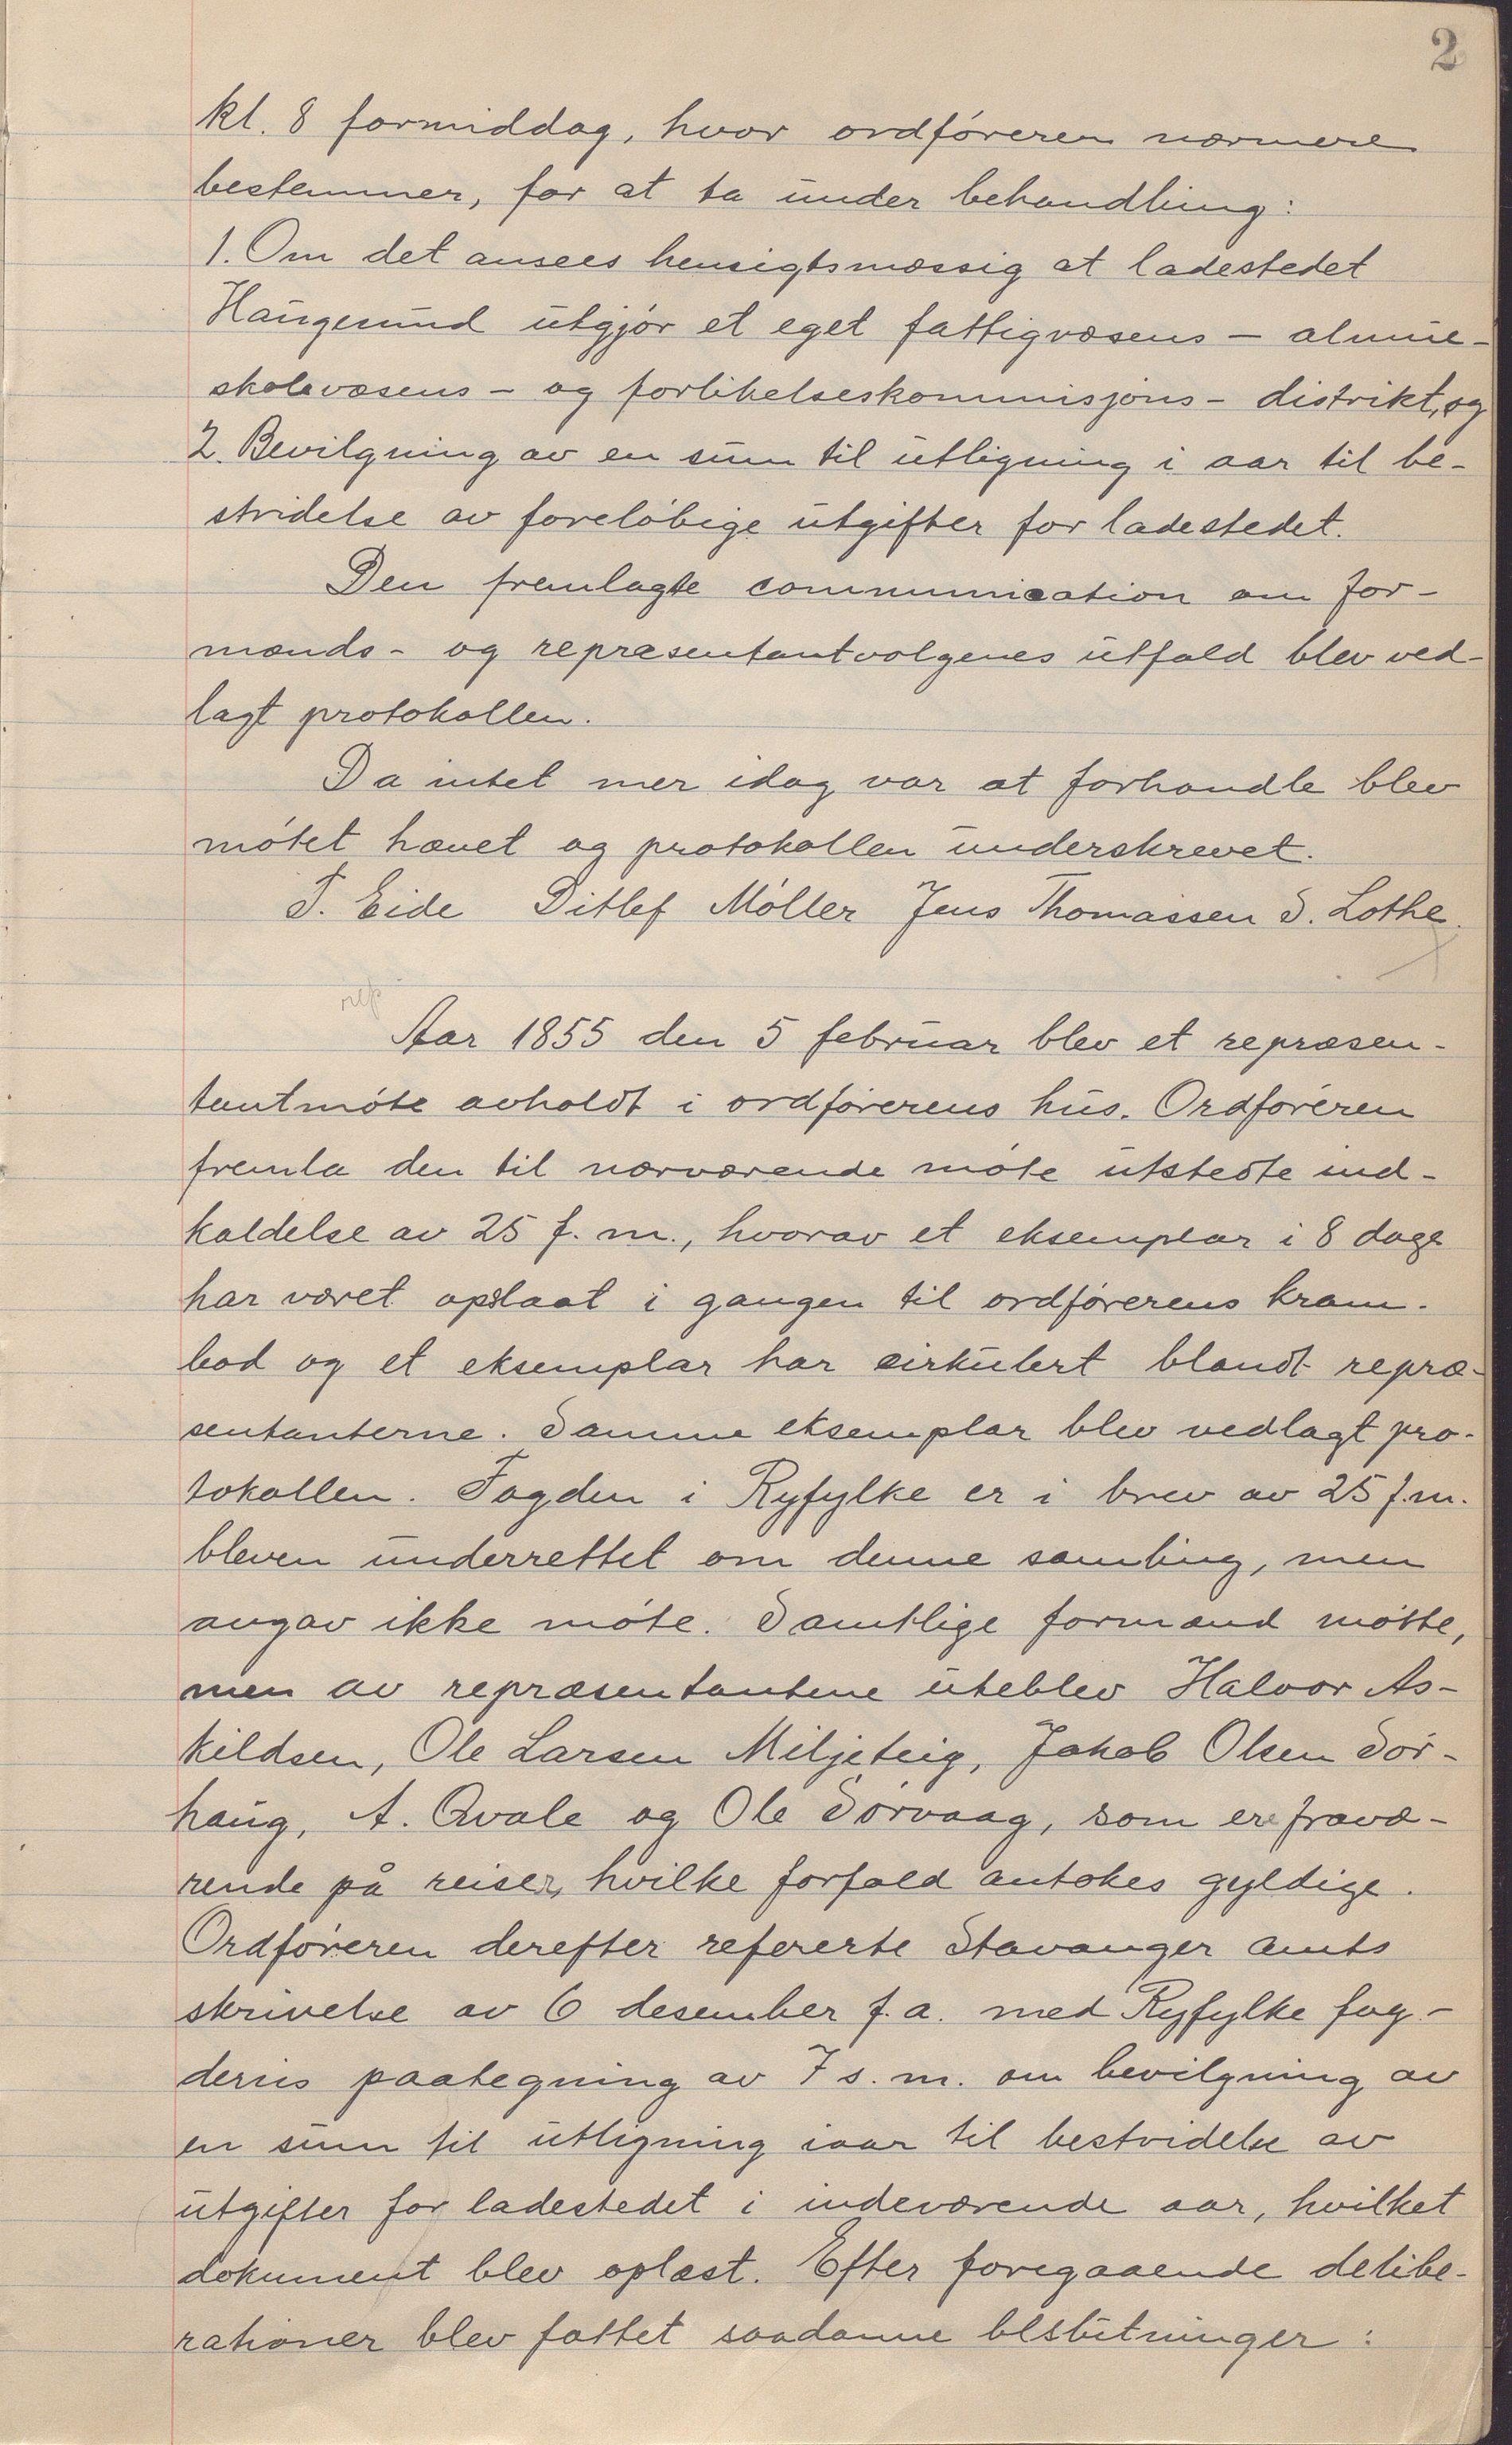 2
kl. 8 formiddag, hvor ordføreren nærmere
bestemmer, for at ta under behandling:
1. Om det ansees hensigtsmæssig at ladestedet
Haugesund utgjør et eget fattigvæsens - almue-
skolevæsens - og forlikelseskommisjons - distrikt, og
2. Bevilgning av en sum til utligning i aar til be-
stridelse av foreløbige utgifter for ladestedet.
Den fremlagte communication om for-
mænds - og repræsentantvalgenes utfald blev ved-
lagt protokollen.
Da intet mer idag var at forhandle blev
møtet hævet og protokollen underskrevet.
T. Eide Ditlef Møller Jens Thomassen S. Lothe.
rep
Aar 1855 den 5 februar blev et repræsen-
tantmøte avholdt i ordførerens hus. Ordføreren
fremla den til nærværende møte utstedte ind-
kaldelse av 25 f. m., hvorav et eksemplar i 8 dage
har været opslaat i gangen til ordførerens kram-
bod og et eksemplar har cirkulert blandt repræ-
sentanterne. Samme eksemplar blev vedlagt pro-
tokollen. Fogden i Ryfylke er i brev av 25 f.m.
bleven underrettet om denne samling, men
avgav ikke møte. Samtlige formænd møtte,
men av repræsentantene uteblev Halvor As-
kildsen, Ole Larsen Miljeteig, Jakob Olsen Sør-
haug, A. Qvale og Ole Sørvaag, som ere fravæ-
rende på reiser, hvilke forfald antokes gyldige.
Ordføreren derefter refererte Stavanger amts
skrivelse av 6 desember f. a. med Ryfylke fog-
deris paategning av 7 s. m. om bevilgning av
en sum til utligning iaar til bestridelse av
utgifter for ladestedet i indeværende aar, hvilket
dokument blev oplæst. Efter foregaaende delibe-
rationer blev fattet saadanne beslutninger: